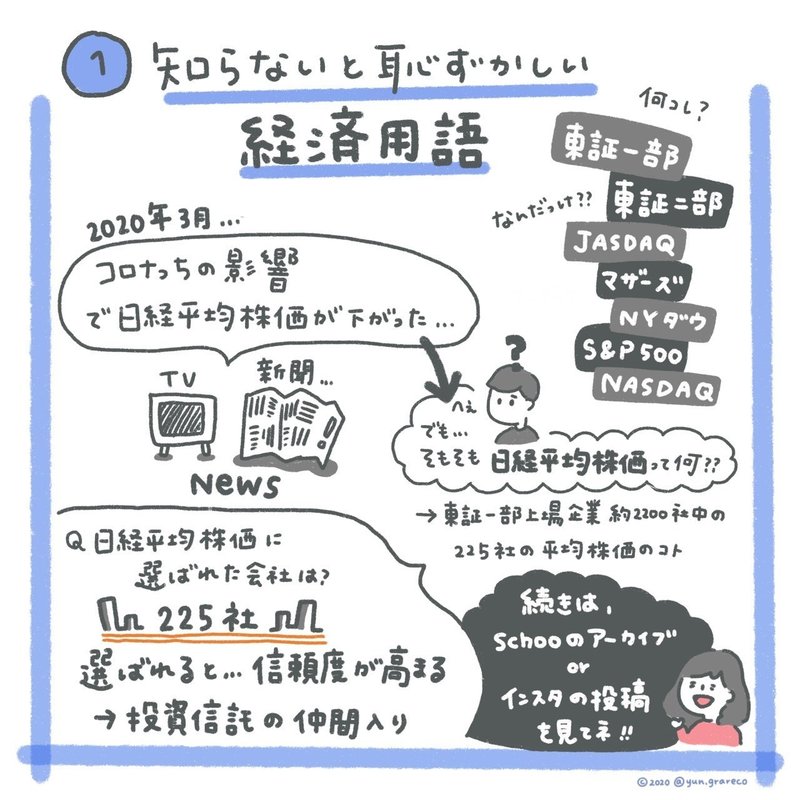 1 知らないと恥ずかしい
経済用語
何コレ?
東証一部
なんだっけ??
東証二部
JASDAQ
マザーズ
NYダウ
S&P500
NASDAQ
2020年3月...
コロナっちの影響
で日経平均株価が下がった...
TV
新聞...
News
?
へぇ
でも...
そもそも日経平均株価って何??
→東証一部上場企業約2200社中の
225社の平均株価のコト
Q日経平均株価に
選ばれた会社は?
225社
選ばれると...信頼度が高まる
→投資信託の仲間入り
続きは、
Schooのアーカイブ
or
インスタの投稿
を見てネ!!
©2020 @yun.grareco